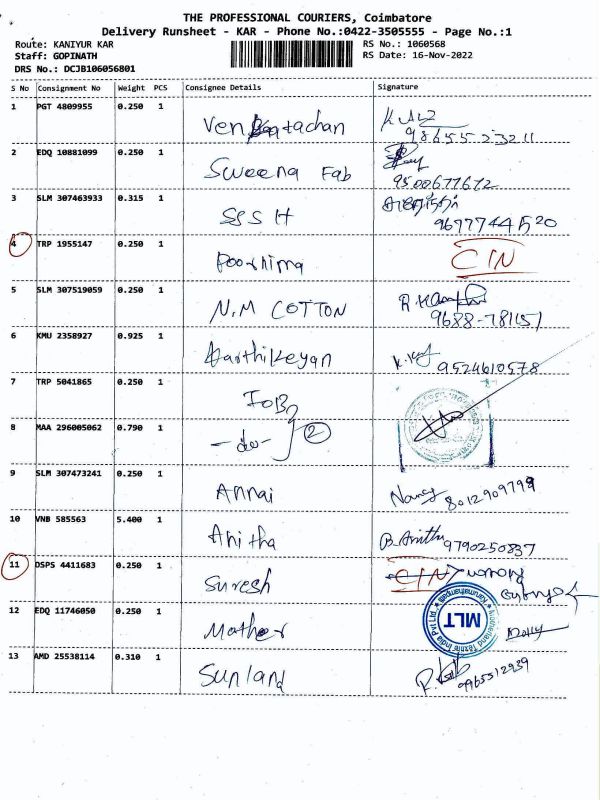 THE PROFESSIONAL COURIERS, Coimbatore
Delivery Runsheet - KAR - Phone No.:0422-3505555 - Page No.:1
Route: KANIYUR KAR
RS No.: 1060568
Staff: GOPINATH
RS Date: 16-Nov-2022
DRS No.: DCJB106056801
S No Consignment No Weight PCS Consignee Details Signature
1 PGT 4809955 0.250 1
98655 23211
2 EDQ 10881099 0.250 1 Sweena Fab
9500677672
3 SLM 307463933 0.315 1 SSSH
4 TRP 1955147 0.250 1 Poornima CIN
5 SLM 307519059 0.250 1 N.M COTTON
6 KMU 2358927 0.925 1 Karthikeyan
9524610578
7 TRP 5041865 0.250 1
8 MAA 296005062 0.790 1 -do- 2
9 SLM 307473241 0.250 1 Annai
8012909799
10 VNB 585563 5.400 1 Anitha B. Anitha
9790250837
11 DSPS 4411683 0.250 1 Suresh CIN
12 EDQ 11746050 0.250 1 Mother MLT
13 AMD 25538114 0.310 1 Sunland
9965512939